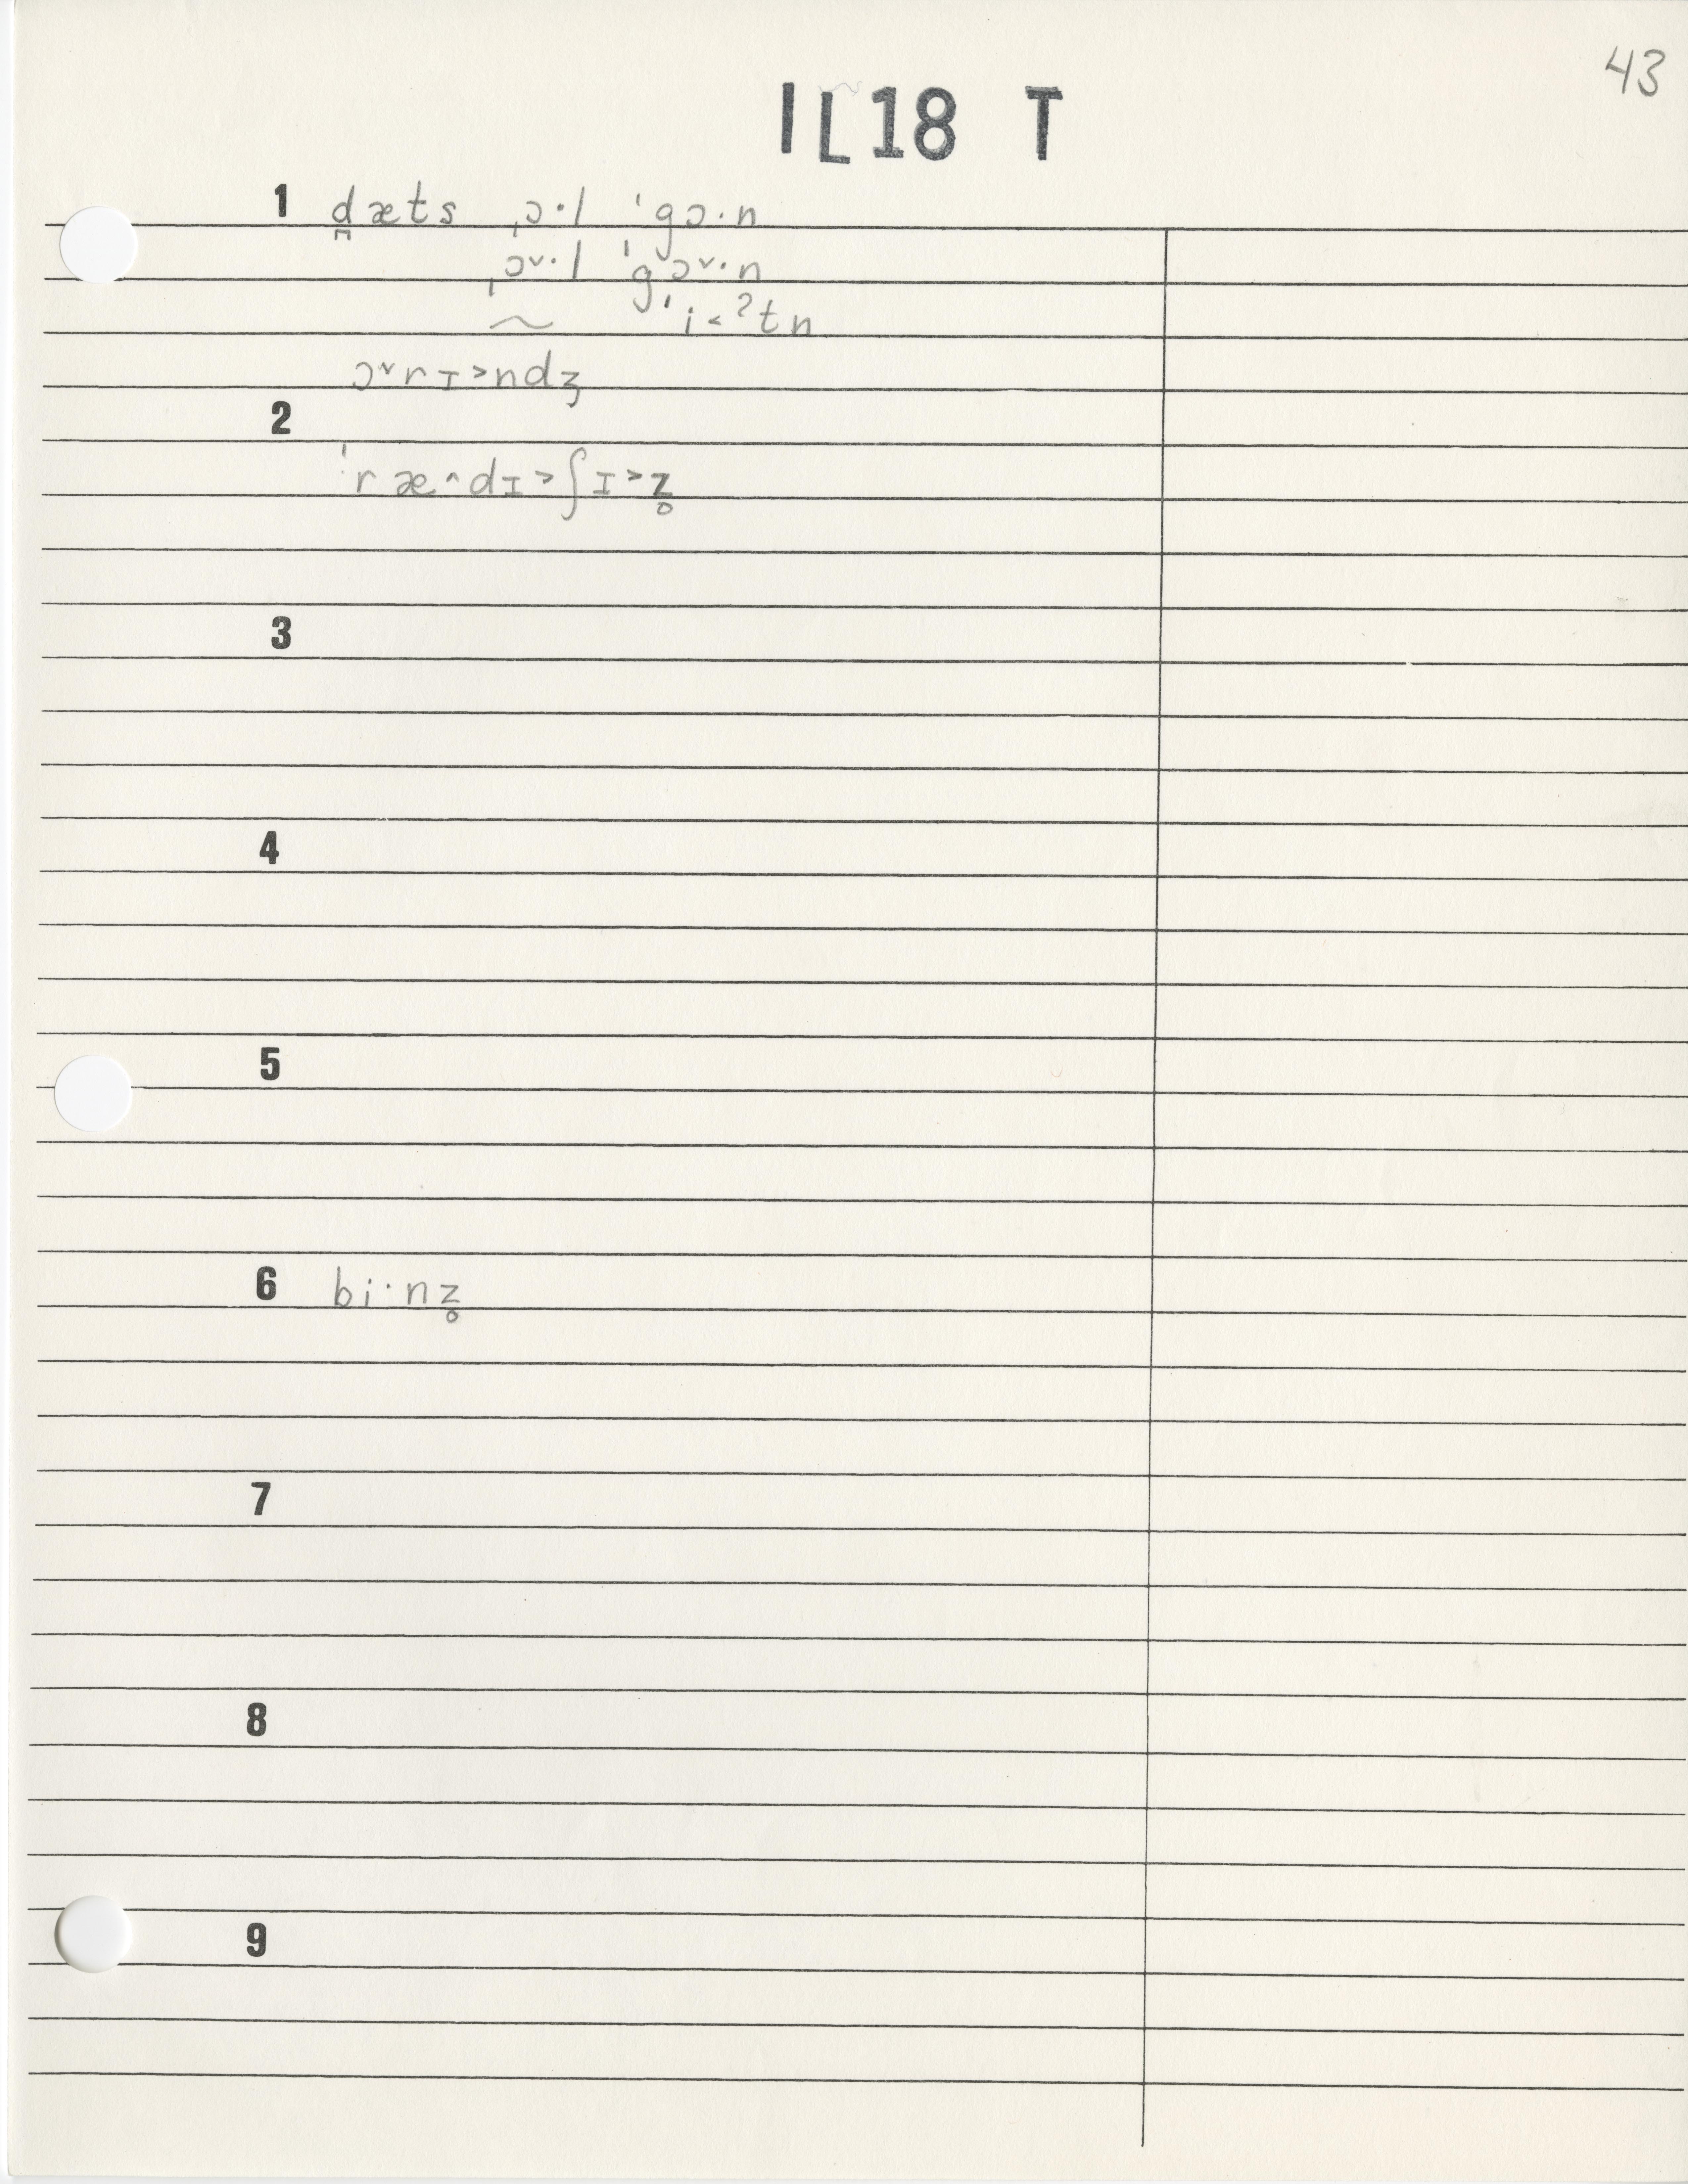 43
IL18 T
1 d̪æts ˌɔ·l ˈgɔ·n
ˌɔ˅·l ˈgɔ˅·n
~ ˈi˂ˀtn
ɔ˅rɪ˃ndʒ
2
ˈræ˄dɪ˃ʃɪ˃z̥
3
4
5
6 bi·nz̥
7
8
9